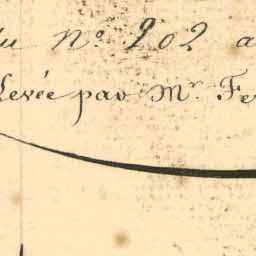 du n° 202 a
Levée par Mr. Fe